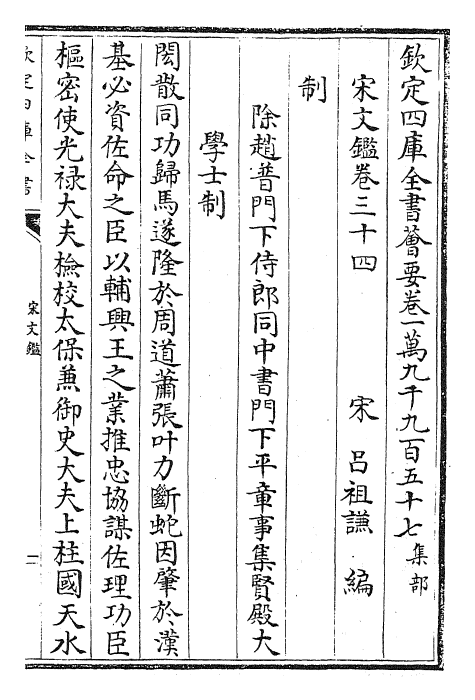 欽定四庫全書薈要卷一萬九千九百五十七集部
宋文鑑卷三十四　宋　呂祖謙　編
制
除趙普門下侍郎同中書門下平章事集賢殿大
學士制
閎散同功歸馬遂隆於周道蕭張叶力斷蛇因肇於漢
基必資佐命之臣以輔興王之業推忠協謀佐理功臣
樞密使光禄大夫檢校太保兼御史大夫上柱國天水
欽定四庫全書
宋文鑑